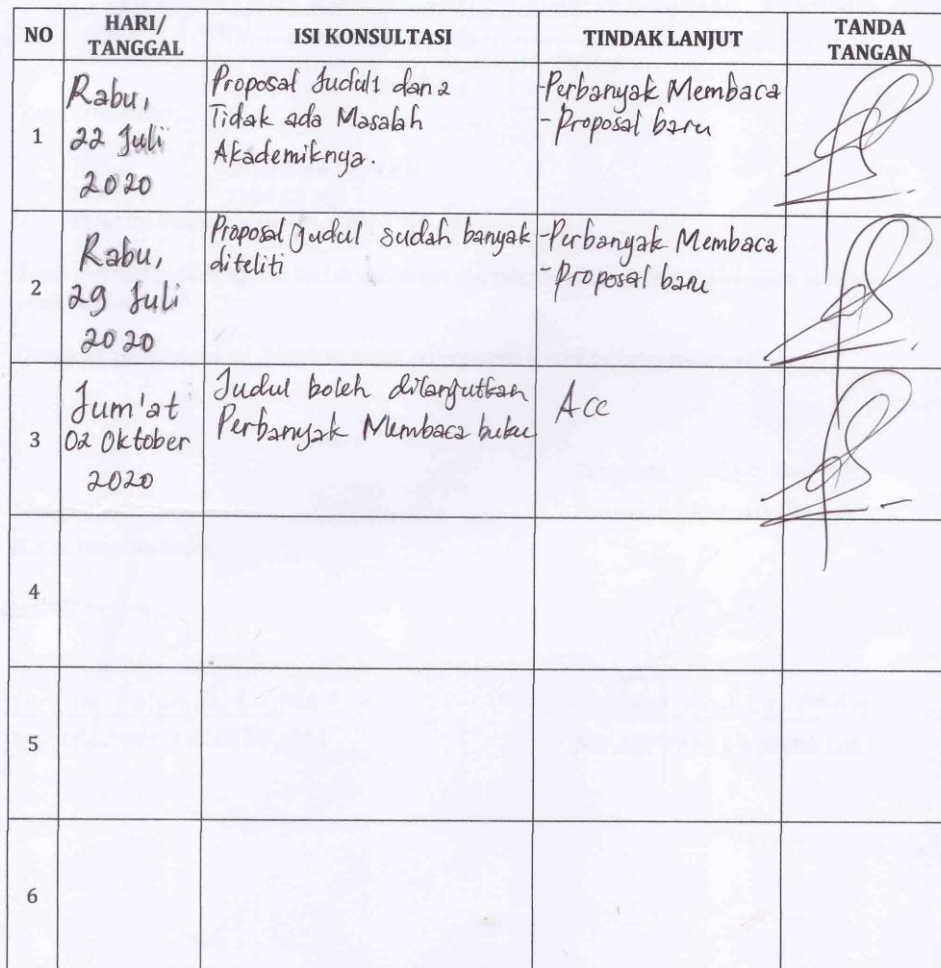 NO HARI/ TANGGAL ISI KONSULTASI TINDAK LANJUT TANDA TANGAN
1
Rabu,
22 Juli
2020
Proposal Judul 1 dan 2
Tidak ada Masalah
Akademiknya.
-Perbanyak Membaca
- Proposal baru
2
Rabu,
29 Juli
2020
Proposal Judul sudah banyak
diteliti
-Perbanyak Membaca
- Proposal baru
3
Jum'at
02 Oktober
2020
Judul boleh dilanjutkan
Perbanyak Membaca buku
Acc
4
5
6